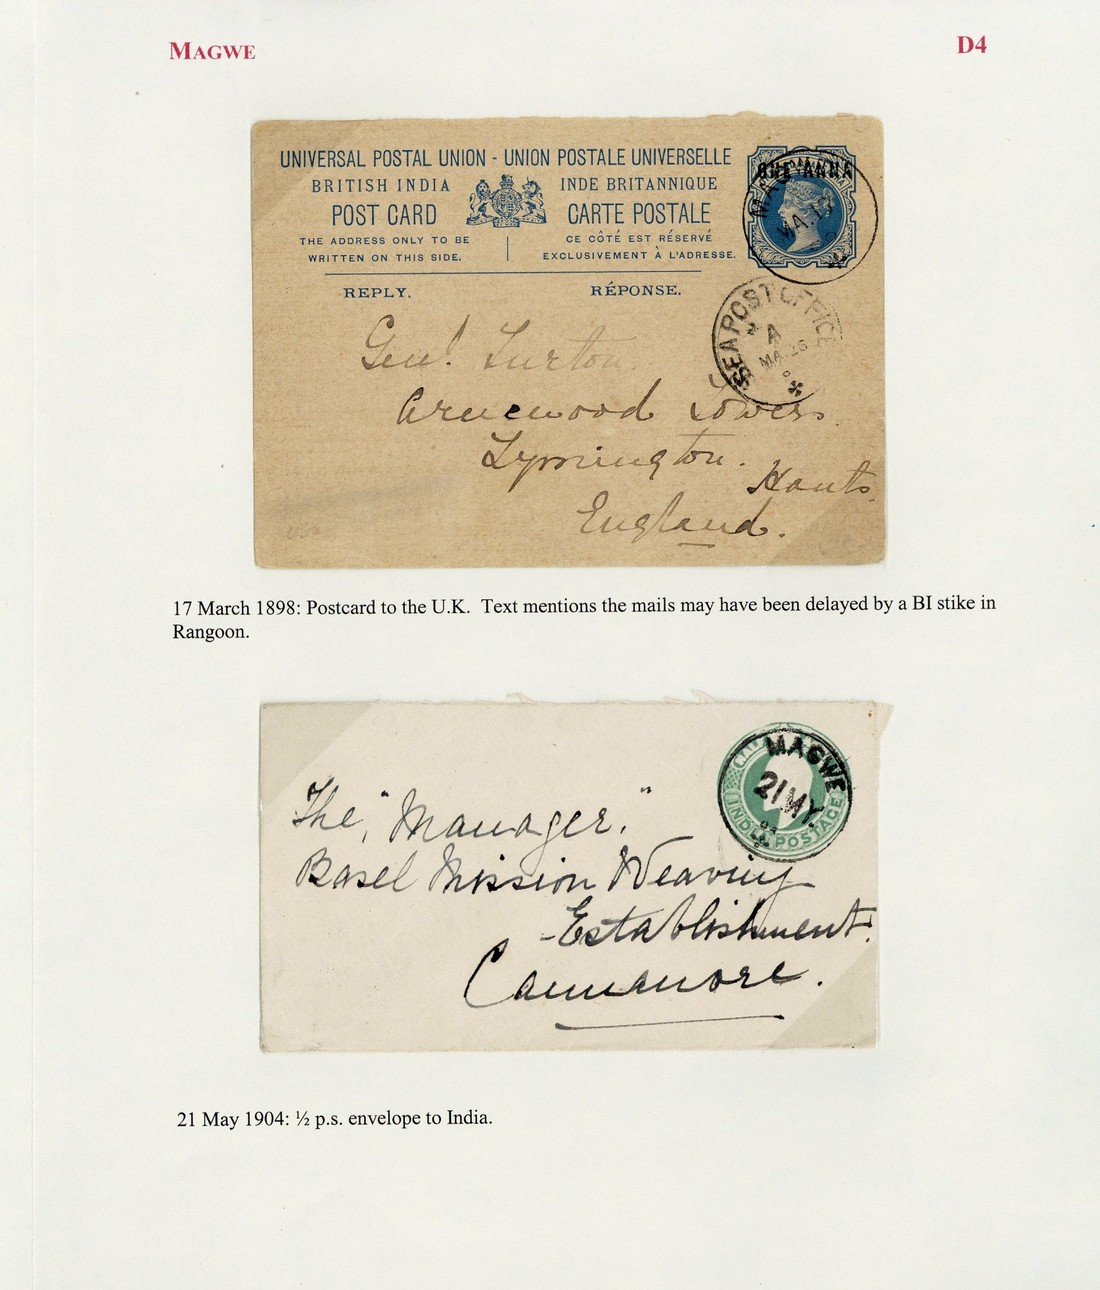 MAGWE
D4
UNIVERSAL POSTAL UNION - UNION POSTALE UNIVERSELLE
BRITISH INDIA
INDE BRITANNIQUE
POST CARD
CARTE POSTALE
THE ADDRESS ONLY TO BE
WRITTEN ON THIS SIDE.
CE CÔTÉ EST RÉSERVÉ
EXCLUSIVEMENT À L'ADRESSE.
REPLY.
RÉPONSE.
ONE ANNA
SEA POST OFFICE
A
MA. 26
Genl. Turton.
Arnewood Towers.
Lymington.
Hants.
England.
17 March 1898: Postcard to the U.K.  Text mentions the mails may have been delayed by a BI stike in
Rangoon.
MAGWE
21 MY
04
INDIA POSTAGE
The "Manager."
Basel Mission Weaving
Establishment.
Cannanore.
21 May 1904: ½ p.s. envelope to India.